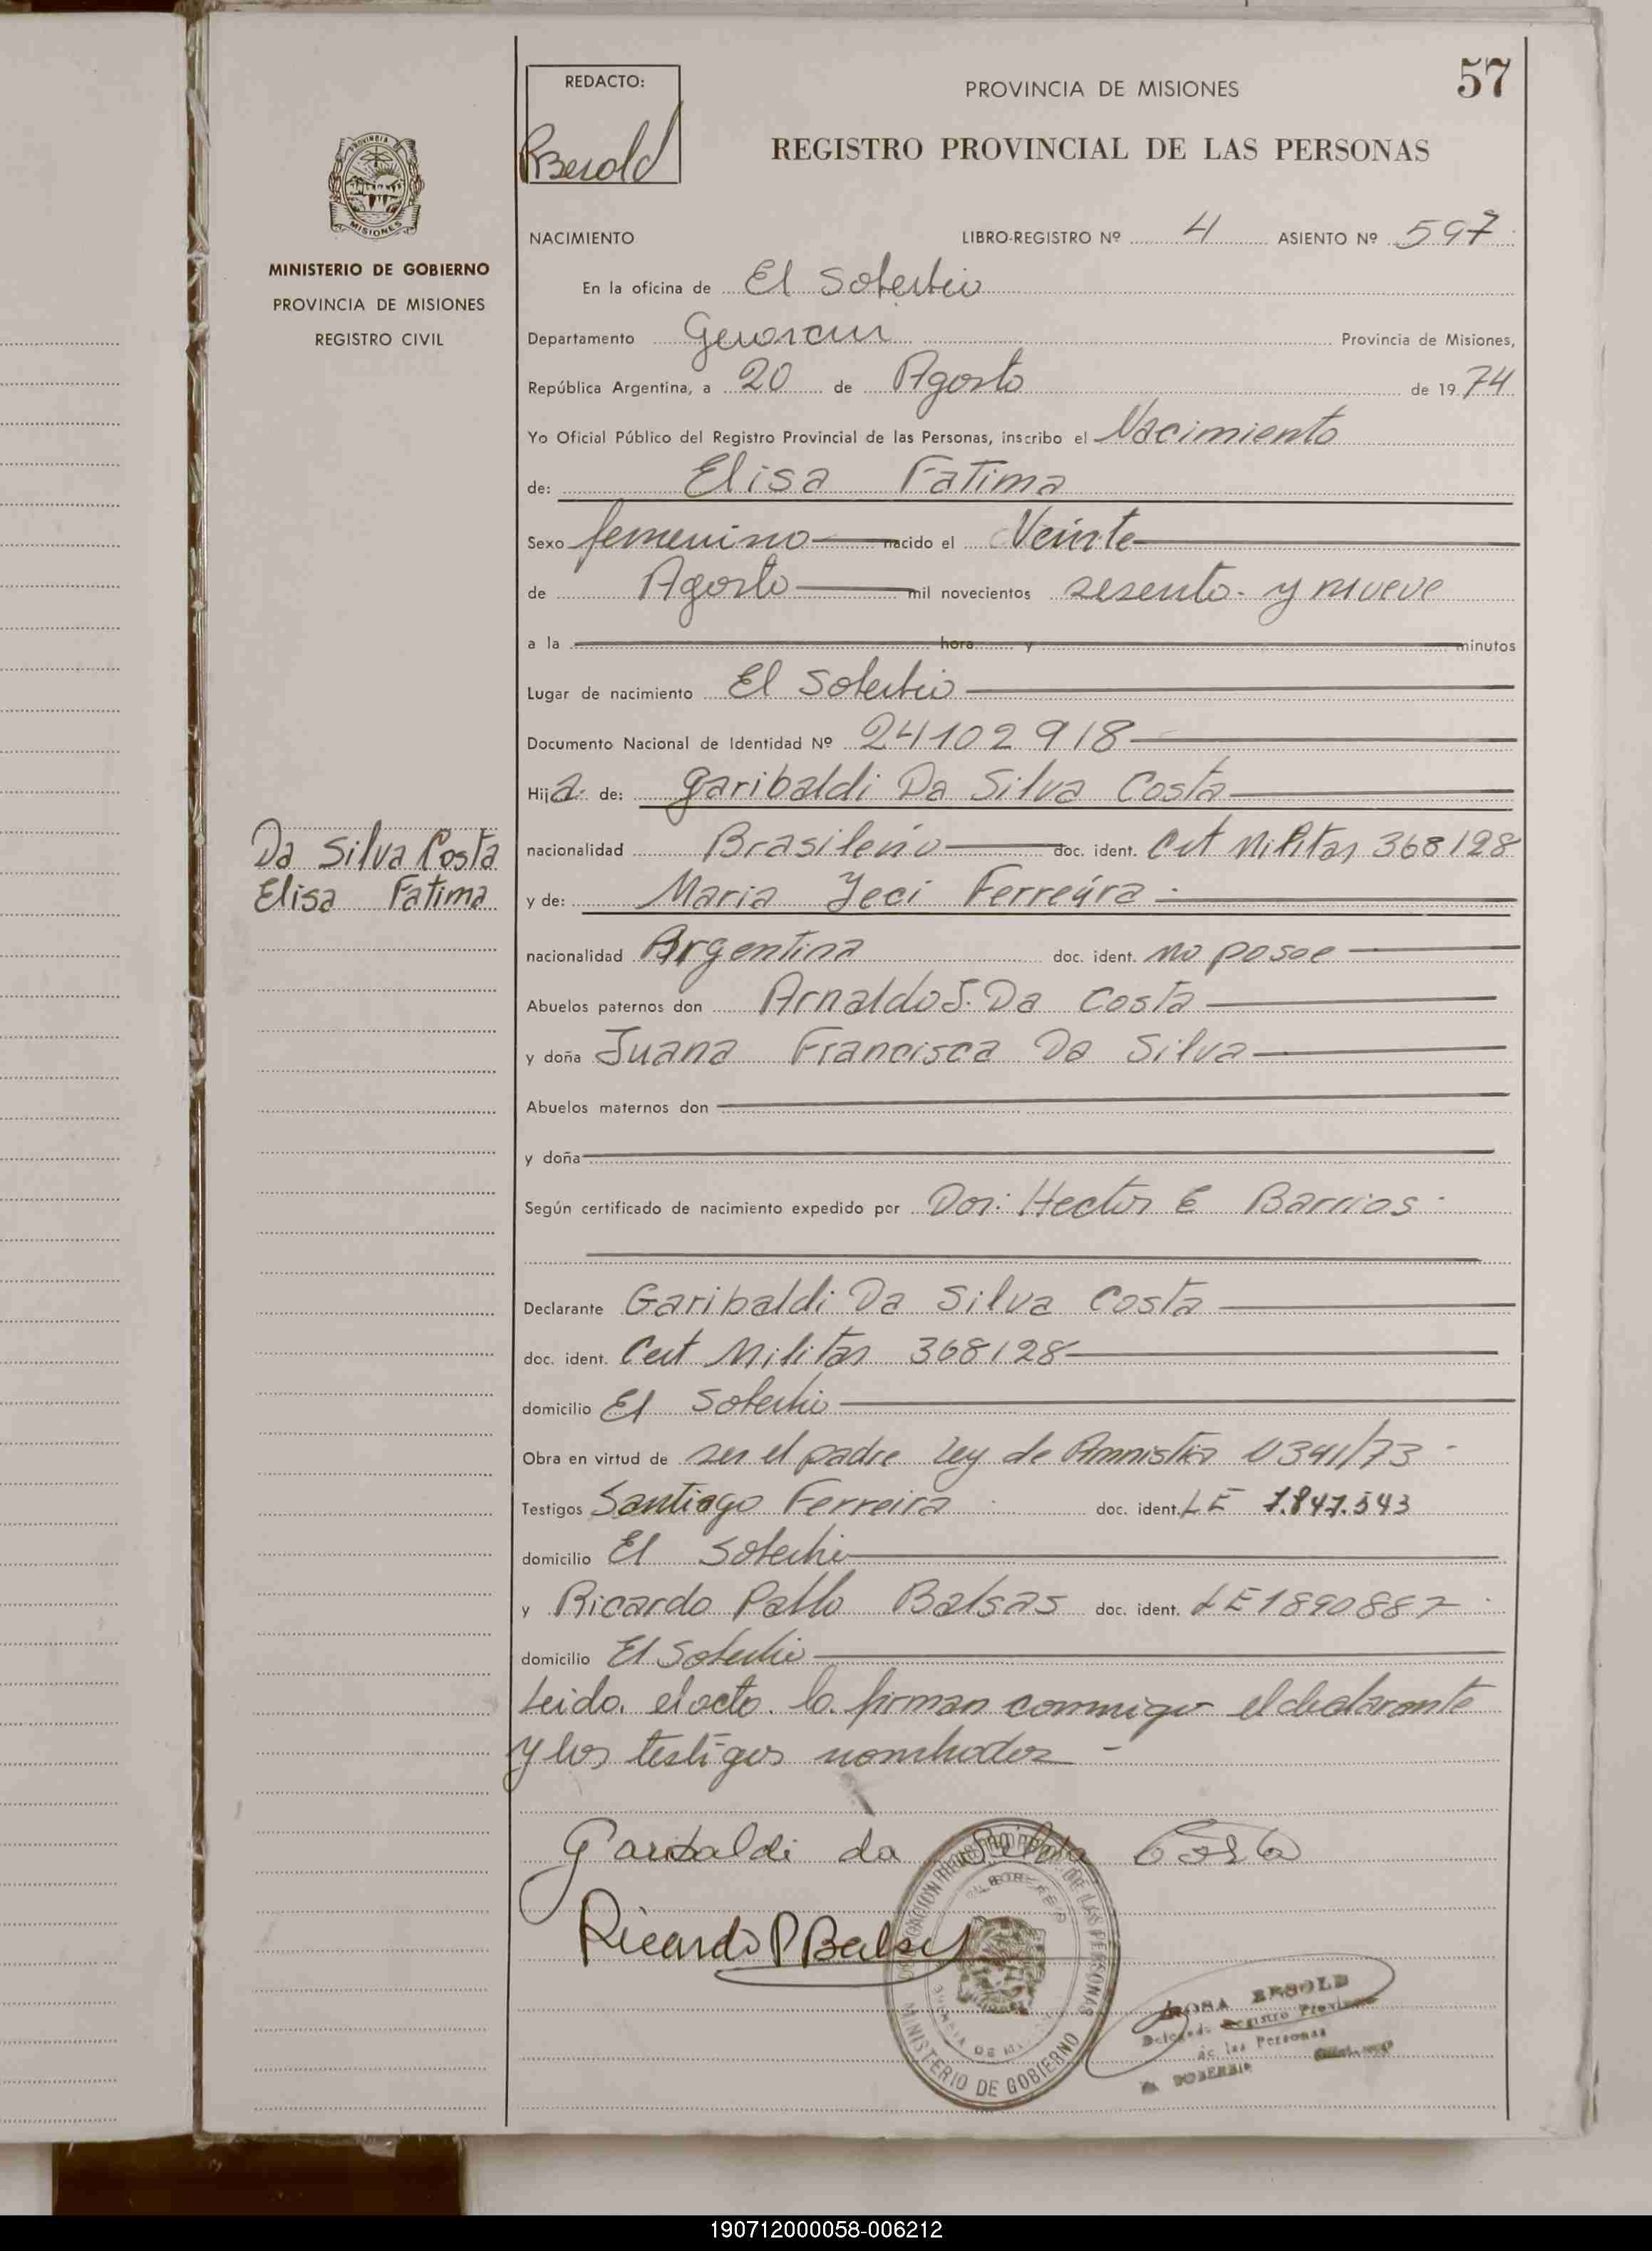 57
REDACTO:
PROVINCIA DE MISIONES
RBerold
REGISTRO PROVINCIAL DE LAS PERSONAS
PROVINCIA DE
MISIONES
NACIMIENTO LIBRO-REGISTRO Nº 4 ASIENTO Nº 597
MINISTERIO DE GOBIERNO
PROVINCIA DE MISIONES
REGISTRO CIVIL
En la oficina de El Soberbio
Departamento Guarani Provincia de Misiones,
República Argentina, a 20 de Agosto de 1974
Yo Oficial Público del Registro Provincial de las Personas, inscribo el Nacimiento
de: Elisa Fatima
Sexo femenino nacido el Veinte
de Agosto mil novecientos sesenta y nueve
a la hora y minutos
Lugar de nacimiento El Soberbio
Documento Nacional de Identidad Nº 24102918
Hija de: garibaldi Da Silva Costa
Da Silva Costa
Elisa Fatima
nacionalidad Brasileño doc. ident. Cert Militar 368128
y de: Maria Jeci Ferreira
nacionalidad Argentina doc. ident. no posee
Abuelos paternos don Arnaldo S. Da Costa
y doña Juana Francisca Da Silva
Abuelos maternos don
y doña
Según certificado de nacimiento expedido por Dor: Hector E Barrios
Declarante Garibaldi Da Silva Costa
doc. ident. Cert Militar 368128
domicilio El Soberbio
Obra en virtud de ser el padre Ley de Amnistia 0341/73
Testigos Santiago Ferreira doc. ident. LE 7.847.543
domicilio El Soberbio
y Ricardo Pablo Balsas doc. ident. LE 1890887
domicilio El Soberbio
Leida el acta la firman conmigo el declarante
y los testigos nombrados
Garibaldi da Silva Costa
Ricardo P Balsas
DE LAS PERSONAS
MINISTERIO DE GOBIERNO
ROSA BEROLD
Delegada Registro Provincial
de las Personas
EL SOBERBIO
190712000058-006212